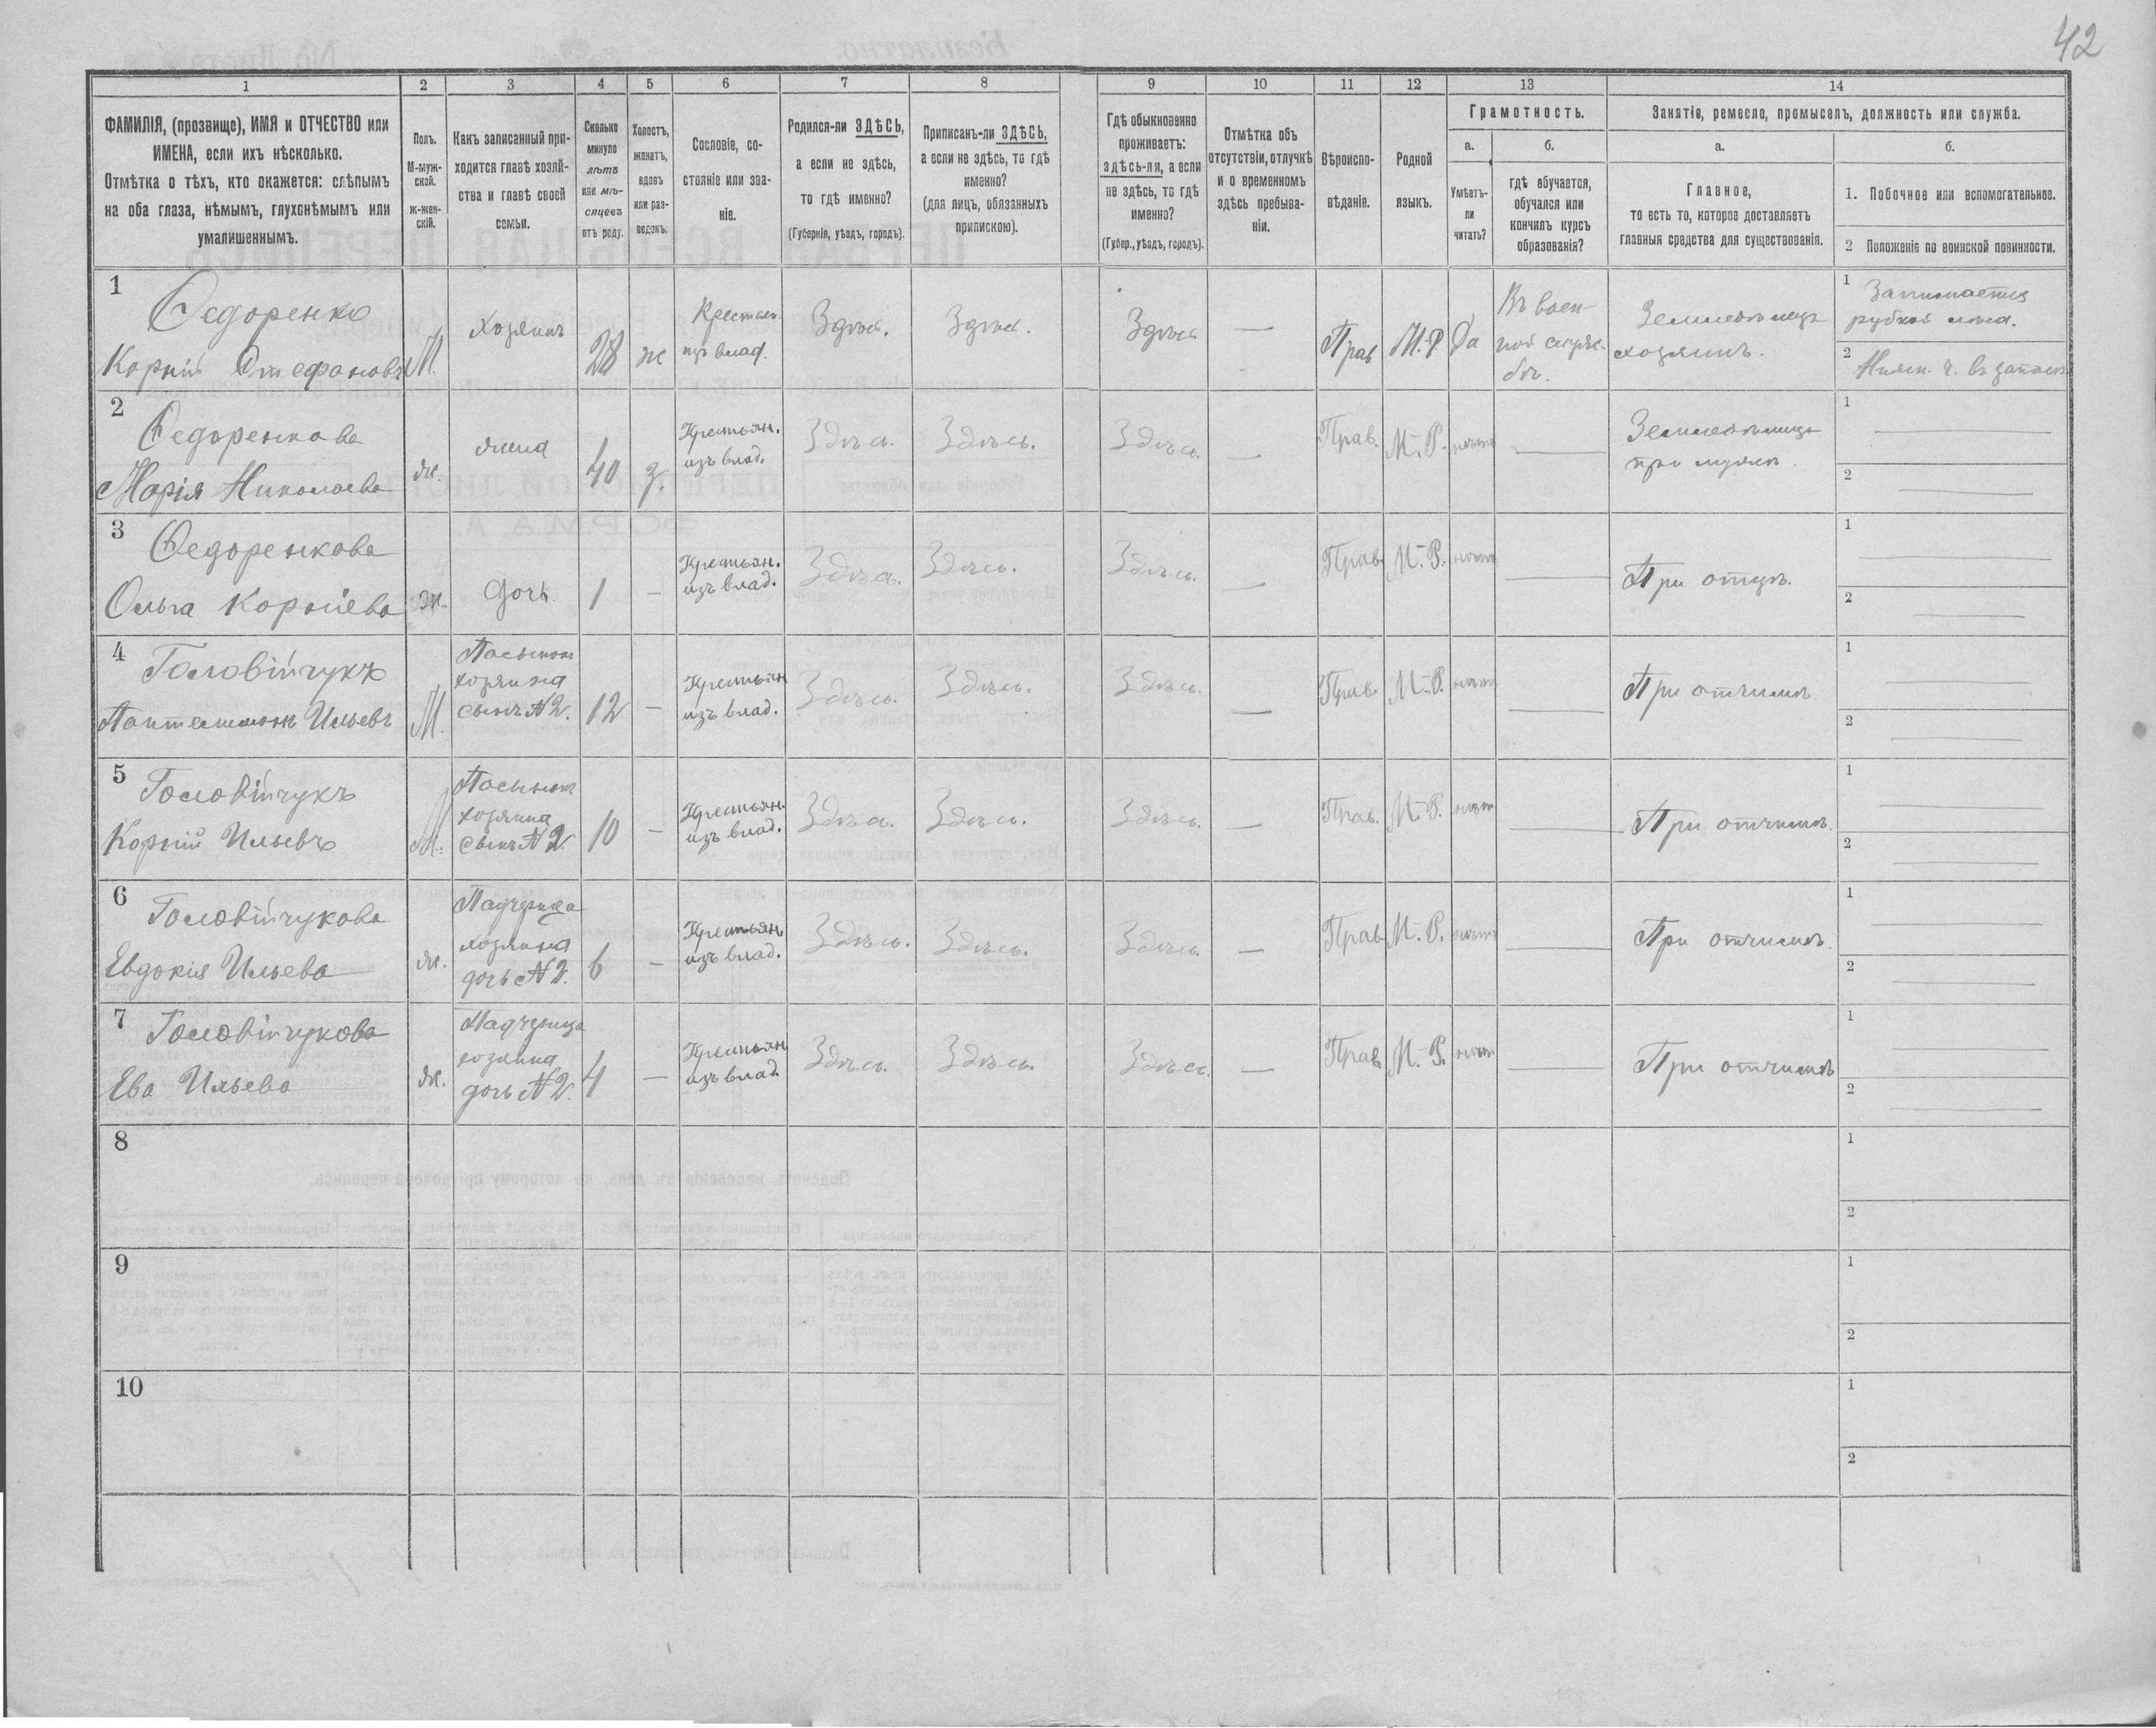 42
1 2 3 4 5 6 7 8 9 10 11 12 13 14
ФАМИЛІЯ, (прозвище), ИМЯ и ОТЧЕСТВО или
ИМЕНА, если ихъ нѣсколько.
Отмѣтка о тѣхъ, кто окажется: слѣпымъ
на оба глаза, нѣмымъ, глухонѣмымъ или
умалишеннымъ.
Полъ.
М-муж-
ской.
ж-жен-
скій.
Какъ записанный при-
ходится главѣ хозяй-
ства и главѣ своей
семьи.
Сколько
минуло
лѣтъ
или мѣ-
сяцевъ
отъ роду.
Холостъ,
женатъ,
вдовъ
или раз-
веденъ.
Сословіе, со-
стояніе или зва-
ніе.
Родился-ли ЗДѢСЬ,
а если не здѣсь,
то гдѣ именно?
(Губернія, уѣздъ, городъ).
Приписанъ-ли ЗДѢСЬ,
а если не здѣсь, то гдѣ
именно?
(для лицъ, обязанныхъ
припискою).
Гдѣ обыкновенно
проживаетъ:
здѣсь-ли, а если
не здѣсь, то гдѣ
именно?
(Губер., уѣздъ, городъ).
Отмѣтка объ
отсутствіи, отлучкѣ
и о временномъ
здѣсь пребыва-
ніи.
Вѣроиспо-
вѣданіе.
Родной
языкъ.
Грамотность.
а.
Умѣетъ-
ли
читать?
б.
гдѣ обучается,
обучался или
кончилъ курсъ
образованія?
Занятіе, ремесло, промыселъ, должность или служба.
а.
Главное,
то есть то, которое доставляетъ
главныя средства для существованія.
б.
1. Побочное или вспомогательное.
2 Положеніе по воинской повинности.
1
Ѳедоренко
Корній Стефановъ
М.
Хозяинъ
28
ж
Крестьян.
изъ влад.
Здѣсь.
Здѣсь.
Здѣсь
—
Прав
М.-Р.
Да
Въ воен-
ной служ-
бѣ.
Земледѣлецъ
хозяинъ.
1 Занимается
рубкой лѣса.
2 Нижн. ч. въ запасѣ
2
Ѳедоренкова
Марія Николаева
ж.
жена
40
з.
Крестьян.
изъ влад.
Здѣсь.
Здѣсь.
Здѣсь.
—
Прав.
М.-Р.
нѣтъ
—
Земледѣлица
при мужѣ.
1 —
2 —
3
Ѳедоренкова
Ольга Корніева
ж.
дочь
1
—
Крестьян.
изъ влад.
Здѣсь.
Здѣсь.
Здѣсь.
—
Прав.
М.-Р.
нѣтъ
—
При отцѣ.
1 —
2 —
4
Головійчукъ
Пантелимонъ Ильевъ
М.
Пасынокъ
хозяина
сынъ №2.
12
—
Крестьян
изъ влад.
Здѣсь.
Здѣсь.
Здѣсь.
—
Прав.
М.-Р.
нѣтъ
—
При отчимѣ.
1 —
2 —
5
Головійчукъ
Корній Ильевъ
М.
Пасынокъ
хозяина
сынъ №2.
10
—
Крестьян.
изъ влад.
Здѣсь.
Здѣсь.
Здѣсь.
—
Прав.
М.-Р.
нѣтъ
—
При отчимѣ.
1 —
2 —
6
Головійчукова
Евдокія Ильева
ж.
Падчерица
хозяина
дочь №2.
6
—
Крестьян
изъ влад.
Здѣсь.
Здѣсь.
Здѣсь.
—
Прав.
М.-Р.
нѣтъ
—
При отчимѣ.
1 —
2 —
7
Головійчукова
Ева Ильева
ж.
Падчерица
хозяина
дочь №2.
4
—
Крестьян
изъ влад
Здѣсь.
Здѣсь.
Здѣсь.
—
Прав.
М.-Р.
нѣтъ
—
При отчимѣ
1 —
2 —
8
1
2
9
1
2
10
1
2